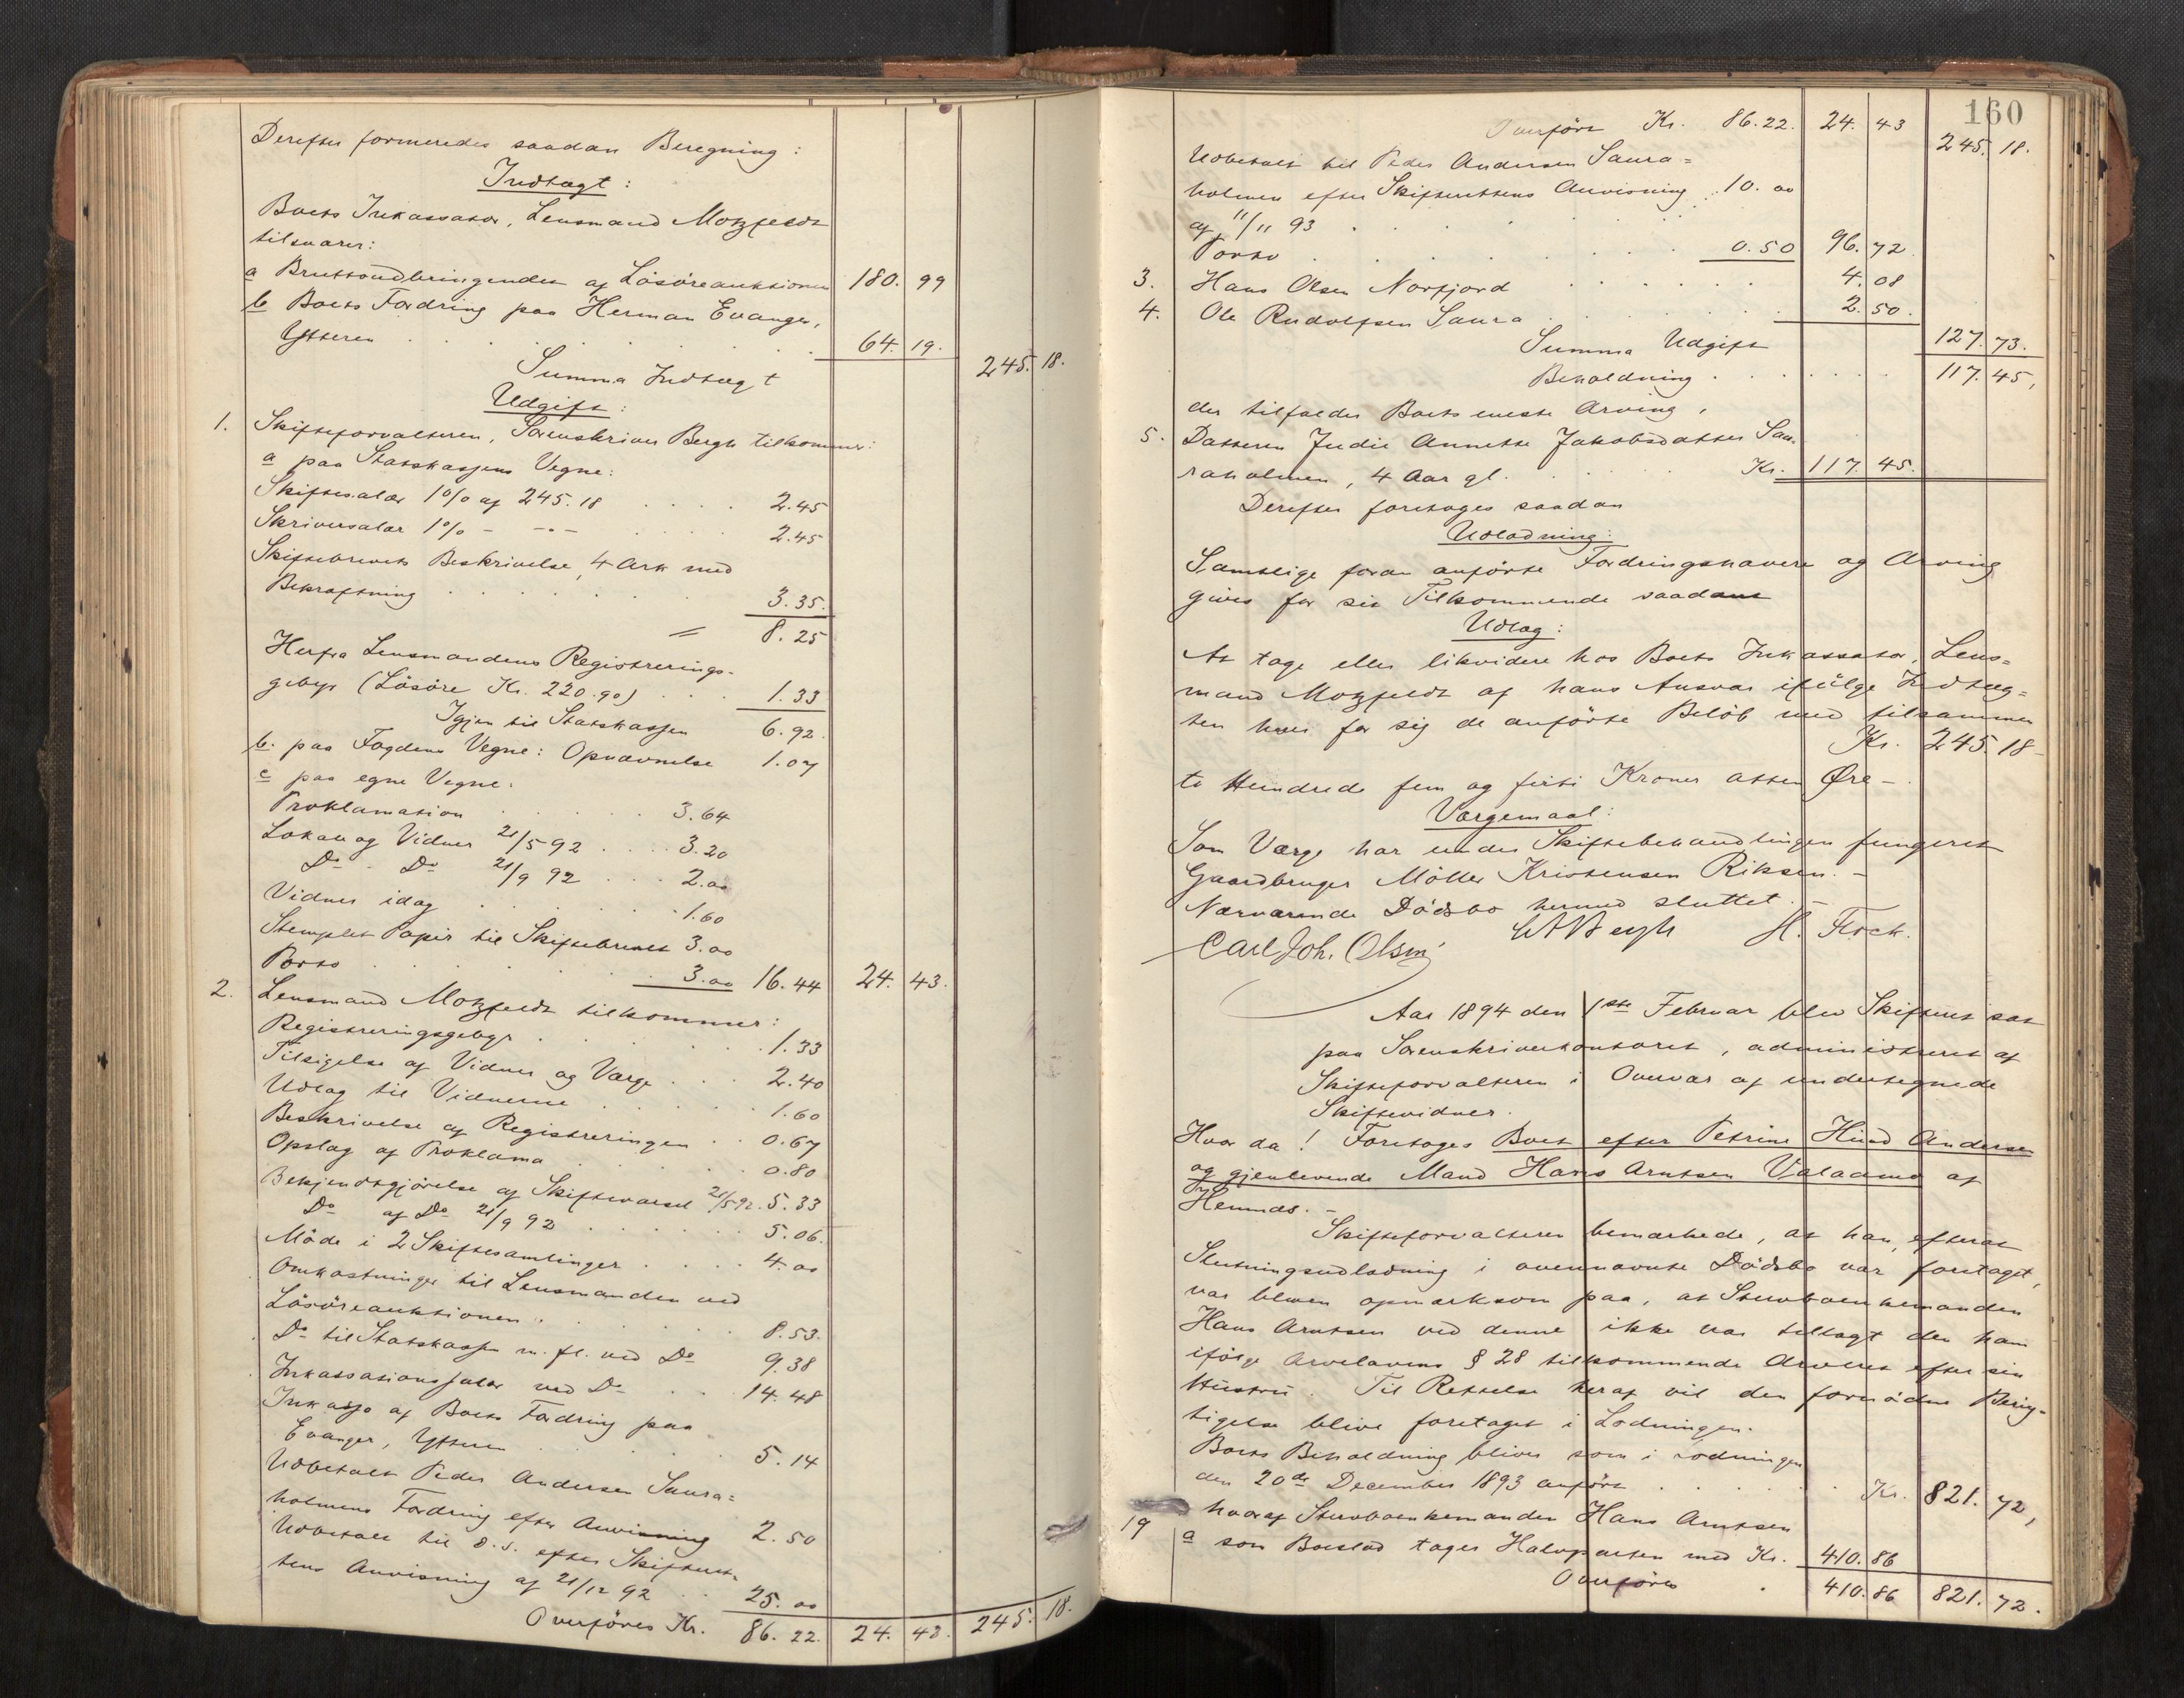 Derefter formeredes saadan Beregning:
Indtægt:
Boets Inkassator, Lensmand Motzfeldt
tilsvarer:
a Bruttoudbringenden af Lösöreauktionen 180. 99
b Boets Fordring paa Herman Evanger,
Ytteren 64. 19.
Summa Indtægt 245. 18.
Udgift:
1. Skifteforvalteren, Sorenskriver Bergh tilkommer:
a paa Statskassens Vegne:
Skiftesalær 1 % af 245.18 2.45
Skriversalær 1 % - -"- 2.45
Skiftebrevets Beskrivelse, 4 Ark med
Bekræftning 3.35.
= 8.25
Herfra Lensmandens Registrerings-
gebyr (Lösöre Kr. 220.90) 1.33
Igjen til Statskassen 6.92.
b. paa Fogdens Vegne: Opnævnelse 1.07
c paa egne Vegne:
Proklamation 3.64
Lokale og Vidner 21/5 92 3.20
Do - Do 21/9 92 2.00
Vidner idag 1.60
Stemplet Papir til Skiftebrevet 3.00
Porto 3.00 16.44 24. 43.
2. Lensmand Motzfeldt tilkommer:
Registreringsgebyr 1.33
Tilsigelse af Vidner og Værge 2.40
Udlæg til Vidnerne 1.60
Beskrivelse af Registreringen 0.67
Opslag af Proklama 0.80
Bekjendtgjörelse af Skiftevarsel 21/5 92. 5.33
Do af Do 21/9 92 5.06.
Möde i 2 Skiftesamlinger 4.00
Omkostninger til Lensmanden ved
Lösöreauktionen 8.53.
Do til Statskassen m. fl. ved Do 9.38
Inkassationssalær ved Do 14.48
Inkasso af Boets Fordring paa
Evanger, Ytteren 5.14
Udbetalt Peder Andersen Saura-
holmens Fordring efter Anvisning 2.50
Udbetalt til d. s. efter Skifteret-
tens Anvisning af 21/12 92 25.00
Overföres Kr. 86.22. 24. 43. 245. 18.
160
Overfört Kr. 86.22. 24. 43 245. 18.
Udbetalt til Peder Andersen Saura=
holmen efter Skifterettens Anvisning 10.00
af 11/11 93
Porto 0.50 96. 72
3. Hans Olsen Norfjord 4. 08
4. Ole Rudolfsen Saura 2. 50.
Summa Udgift 127. 73.
Beholdning 117. 45,
der tilfalder Boets eneste Arving,
5. Datteren Judie Annette Jakobsdatter Sau-
raholmen, 4 Aar gl. Kr. 117. 45.
Derefter foretages saadan
Udlodning:
Samtlige foran anförte Fordringshavere og Arving
gives for sit Tilkommende saadant
Udlæg:
At tage eller likvidere hos Boets Inkassator, Lens=
mand Motzfeldt af hans Ansvar ifölge Indtæg=
ten hver for sig de anförte Belöb med tilsammen
Kr. 245.18-
to Hundrede fem og firti Kroner atten Øre -
Værgemaal:
Som Værge har under Skiftebehandlingen fungeret
Gaardbruger Möller Kristensen Riksen. -
Nærværende Dödsbo hermed sluttet. -
Bergh H. Fisch.
Carl Joh. Olsen
Aar 1894 den 1ste Februar blev Skifteret sat
paa Sorenskriverkontoret, administreret af
Skifteforvalteren i Overvær af undertegnede
Skiftevidner.
Hvor da! Foretages Boet efter Petrine Hind Andersen
og gjenlevende Mand Hans Arntsen Valaamo af
Hemnæs. -
Skifteforvalteren bemærkede, at han, efterat
Slutningsudlodning i ovennævnte Dödsbo var foretaget,
var bleven opmærksom paa, at Stervboenkemanden
Hans Arntsen ved denne ikke var tillagt den ham
ifölge Arvelovens § 28 tilkommende Arvelod efter sin
Hustru. Til Rettelse heraf vil den fornödne Berig-
tigelse blive foretaget i Lodningen.
Boets Beholdning bliver som i Lodningen
den 20de December 1893 anfört Kr. 821. 72,
hvoraf Stervboenkemanden Hans Arntsen
19 a som Boeslod tager Halvparten med Kr. 410. 86
Overföres 410. 86 821. 72.